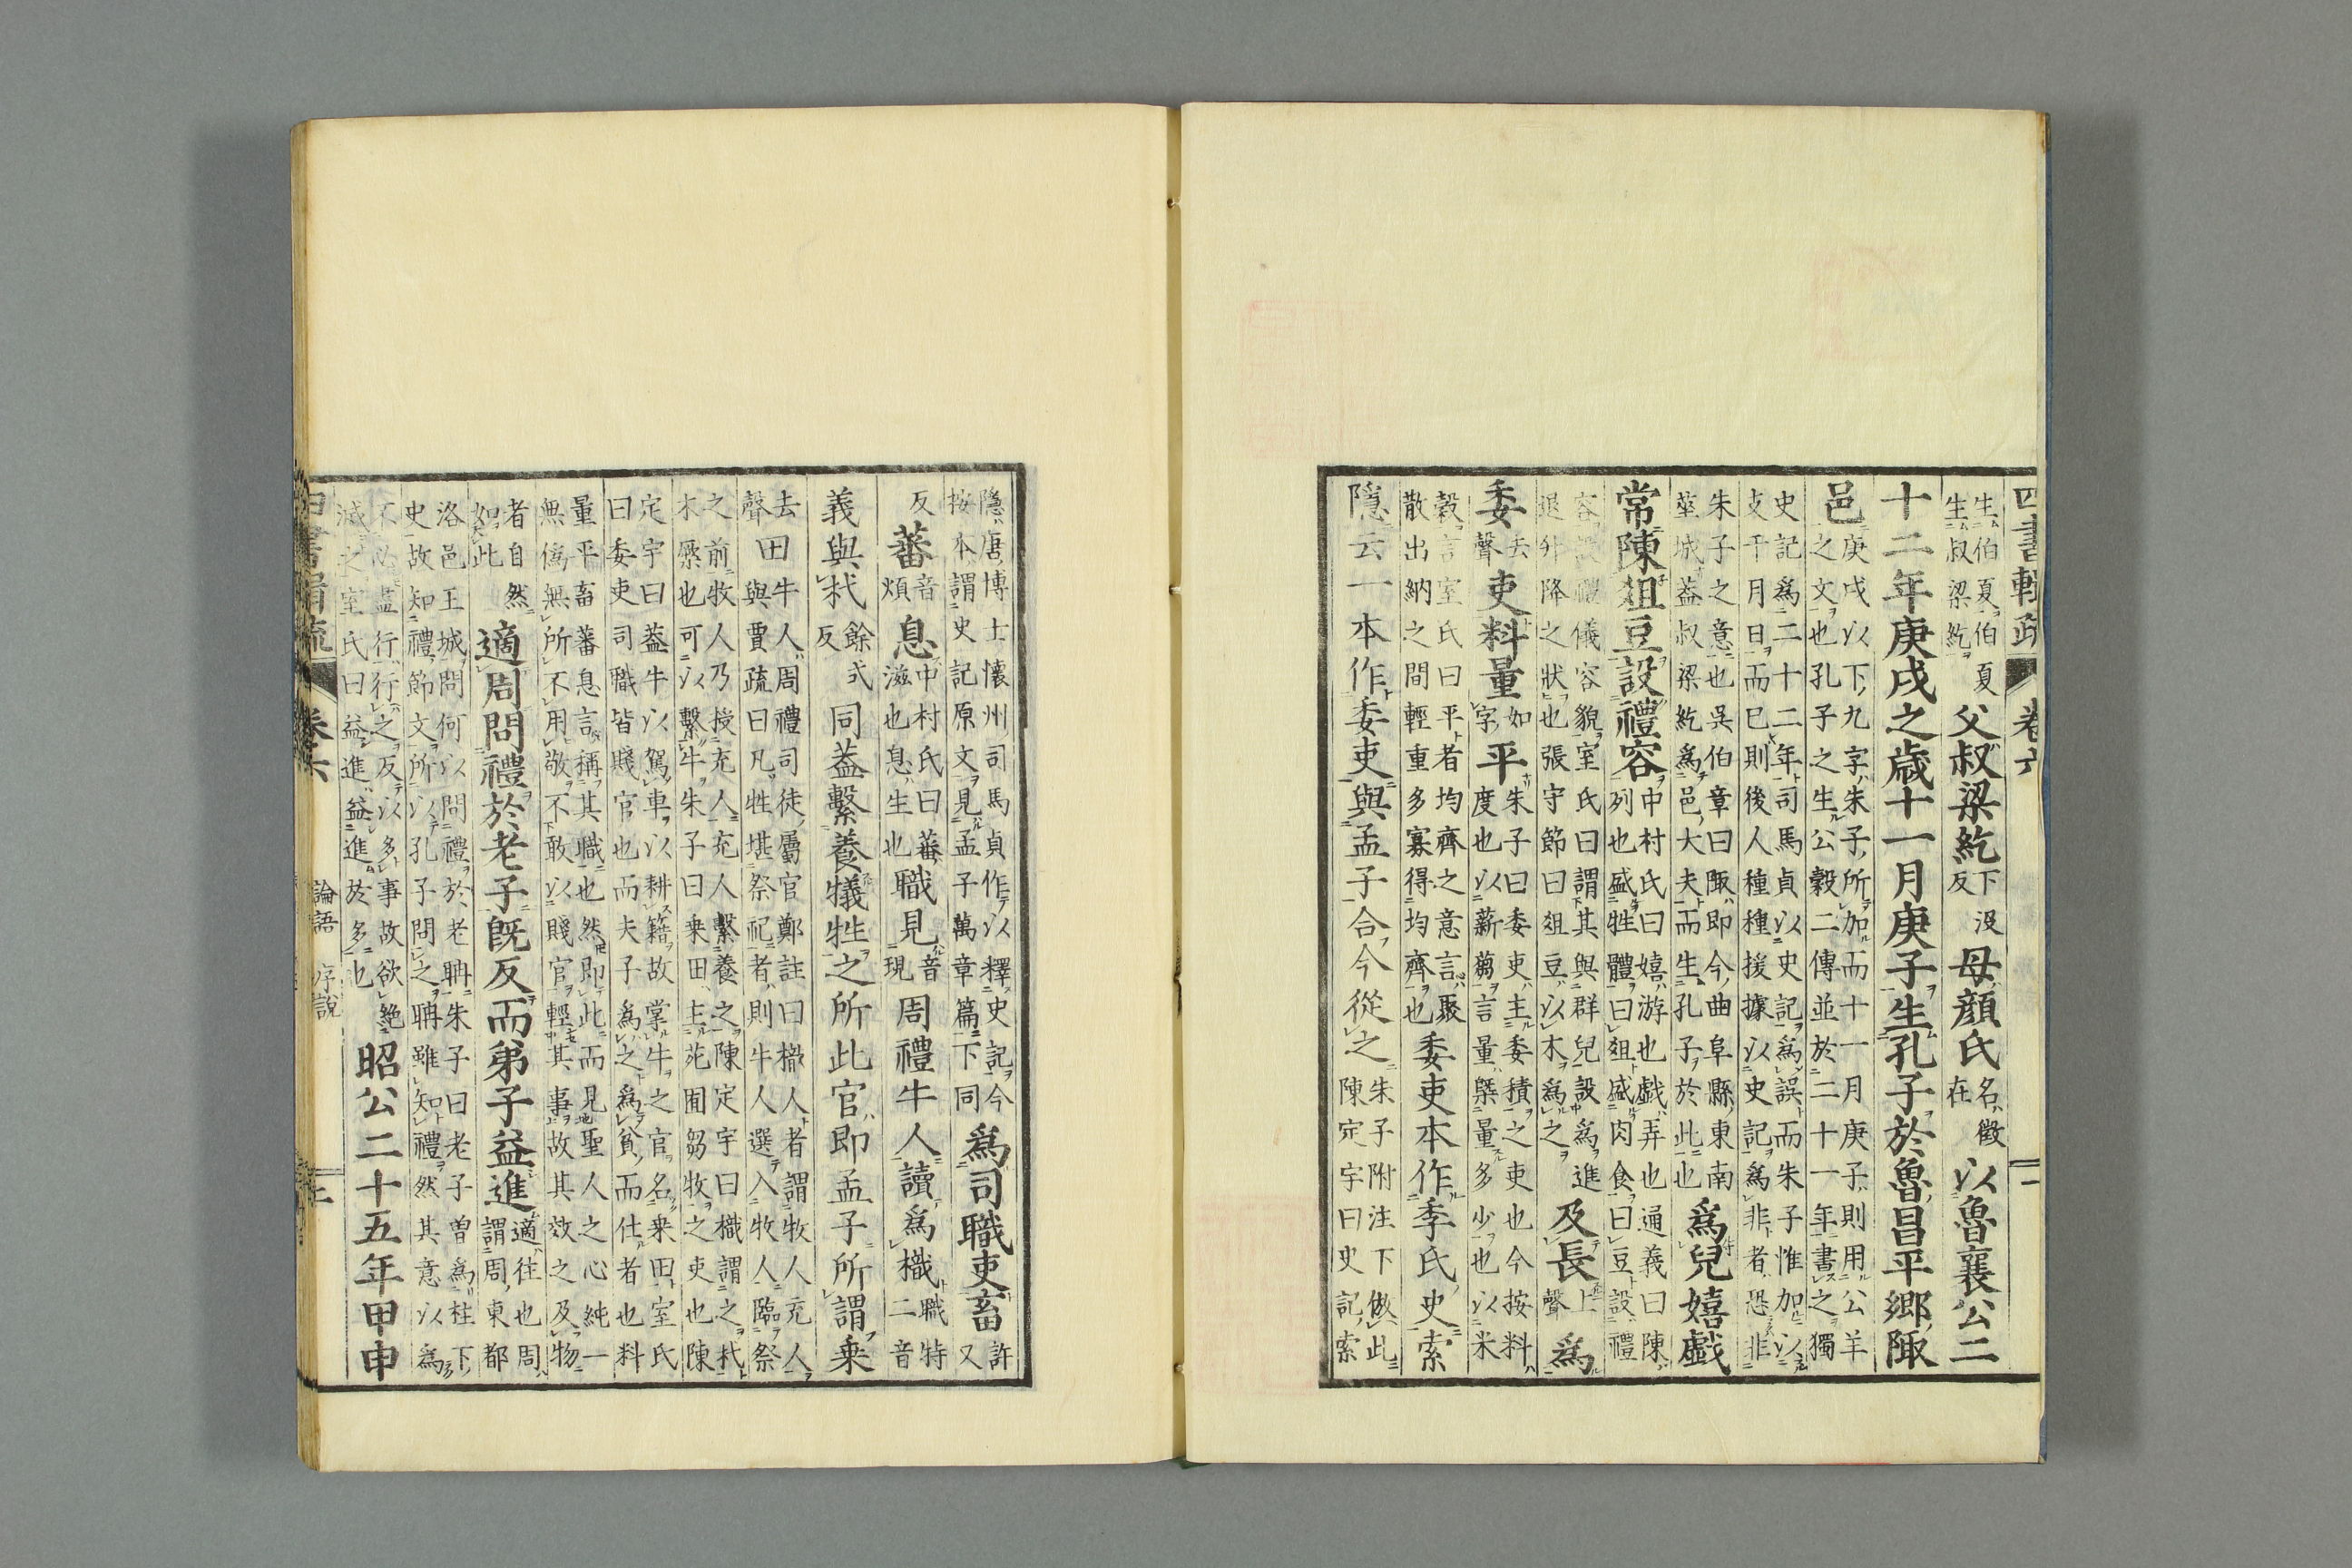 四書輯疏 卷六
生伯夏伯夏
生叔梁紇
父叔梁紇
下没
反
母顔氏
名徵
在
以魯襄公二
十二年庚戌之歳十一月庚子生孔子於魯昌平郷陬
邑
庚戌以下九字朱子所加而十一月庚子則用公羊
之文也孔子之生公穀二傳並於二十一年書之獨
史記爲二十二年司馬貞以史記爲誤而朱子惟加以
十月日而巳則後人種種援據以史記爲非者恐非
朱子之意也吳伯章曰陬即今曲阜縣東南
莝城葢叔梁紇爲邑大夫而生孔子於此也
爲兒嬉戲
常陳俎豆設禮容
中村氏曰嬉游也戯弄也通義曰陳
列也盛牲體曰俎盛肉食曰豆設禮
容設禮儀容貌室氏曰謂其與群兒設爲進
退升降之狀也張守節曰俎豆以木爲之
及長
上
聲
爲
委
去
聲
吏料量
如
字
平
朱子曰委吏主委積之吏也今按料
度也以薪蒭言量槩量多少也以米
穀言室氏曰平者均齊之意言聚
散出納之間輕重多寡得均齊也
委吏本作季氏史索
隱云一本作委吏與孟子合今從之
朱子附注下倣此
陳定宇曰史記索
隱唐博士懷州司馬貞作以釋史記今
按本謂史記原文見孟子萬章篇下同
爲司職吏畜
許
又
反
蕃
音
煩
息
中村氏曰蕃
滋也息生也
職見
音
現
周禮牛人讀爲樴
職特
二音
義與杙
餘式
反
同葢繫養犠牲之所此官即孟子所謂乗
去
聲
田
牛人周禮司徒屬官鄭註曰樴人者謂牧人充人
與賈疏曰凡牲堪祭祀者則牛人選入牧人臨祭
之前牧人乃授充人充人繫養之陳定宇曰樴謂之杙
木橜也可以繫牛朱子曰乗田主苑囿芻牧之吏也陳
定宇曰葢牛以駕車以耕籍故掌牛之官名乗田室氏
曰委吏司職皆賤官也而夫子爲之爲貧而仕者也料
量平畜蕃息言稱其職也然即此而見聖人之心純一
無僞無所不用敬不敢以賤官輕其事故其效之及物
者自然
如此
適周問禮於老子既反而弟子益進
適往也周
謂周東都
洛邑王城問何以問禮於老聃朱子曰老子曽爲柱下
史故知禮節文所以孔子問之聃雖知禮然其意以爲
不必盡行行之反以多事故欲絶
滅之室氏曰益進益進於多也
昭公二十五年甲申
四書輯疏 卷六 論語 序説